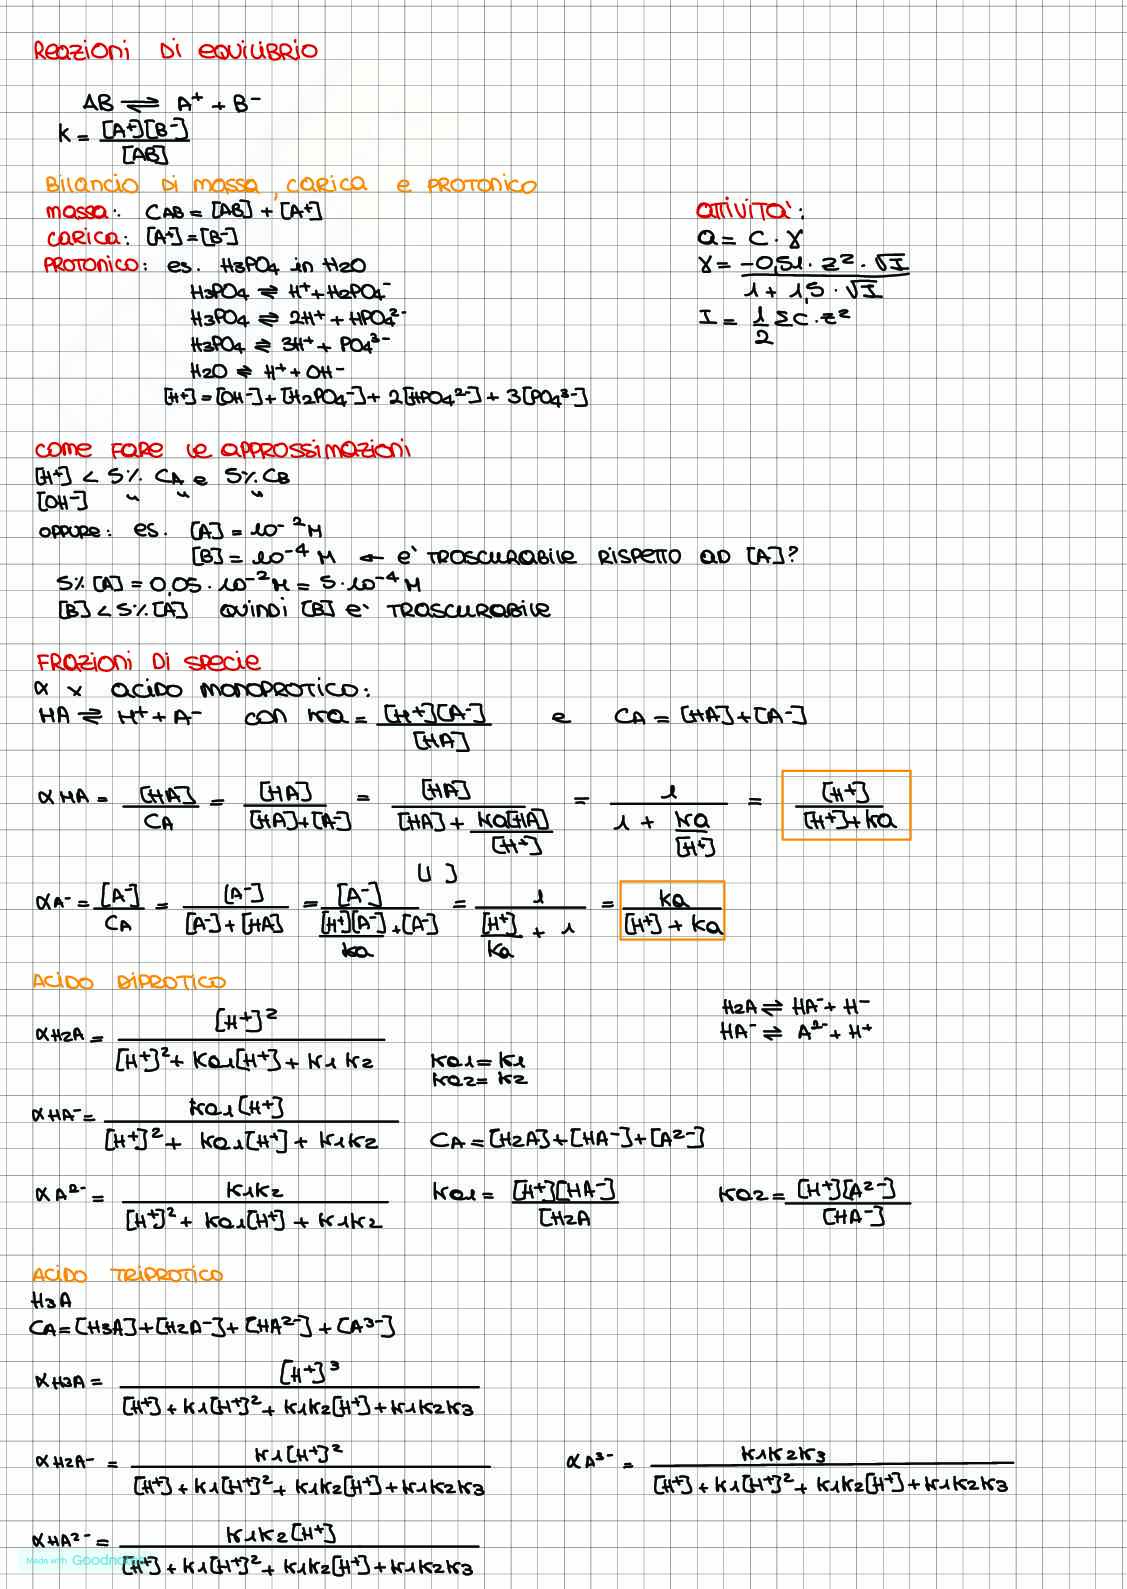 Reazioni di equilibrio
AB ⇌ A⁺ + B⁻
K = [A⁺][B⁻] / [AB]
Bilancio di massa, carica e protonico
massa: CAB = [AB] + [A⁺]
carica: [A⁺] = [B⁻]
protonico: es. H3PO4 in H2O
H3PO4 ⇌ H⁺ + H2PO4⁻
H3PO4 ⇌ 2H⁺ + HPO4²⁻
H3PO4 ⇌ 3H⁺ + PO4³⁻
H2O ⇌ H⁺ + OH⁻
[H⁺] = [OH⁻] + [H2PO4⁻] + 2[HPO4²⁻] + 3[PO4³⁻]
attività:
a = C · γ
γ = -0,51 · z² · √I / 1 + 1,5 · √I
I = 1/2 ΣC · z²
come fare le approssimazioni
[H⁺] < 5% CA e 5% CB
[OH⁻] " " "
oppure: es. [A] = 10⁻² M
[B] = 10⁻⁴ M ← è trascurabile rispetto ad [A]?
5% [A] = 0,05 · 10⁻² M = 5 · 10⁻⁴ M
[B] < 5% [A] quindi [B] è trascurabile
Frazioni di specie
α x acido monoprotico:
HA ⇌ H⁺ + A⁻ con Ka = [H⁺][A⁻] / [HA] e CA = [HA] + [A⁻]
αHA = [HA] / CA = [HA] / [HA] + [A⁻] = [HA] / [HA] + Ka[HA] / [H⁺] = 1 / 1 + Ka / [H⁺] = [H⁺] / [H⁺] + Ka
[ ]
αA⁻ = [A⁻] / CA = [A⁻] / [A⁻] + [HA] = [A⁻] / [H⁺][A⁻] / Ka + [A⁻] = 1 / [H⁺] / Ka + 1 = Ka / [H⁺] + Ka
Acido diprotico
H2A ⇌ HA⁻ + H⁻
HA⁻ ⇌ A²⁻ + H⁺
αH2A = [H⁺]² / [H⁺]² + Ka1[H⁺] + K1K2
Ka1 = K1
Ka2 = K2
αHA⁻ = Ka1[H⁺] / [H⁺]² + Ka1[H⁺] + K1K2
CA = [H2A] + [HA⁻] + [A²⁻]
αA²⁻ = K1K2 / [H⁺]² + Ka1[H⁺] + K1K2
Ka1 = [H⁺][HA⁻] / [H2A
Ka2 = [H⁺][A²⁻] / [HA⁻]
Acido triprotico
H3A
CA = [H3A] + [H2A⁻] + [HA²⁻] + [A³⁻]
αH3A = [H⁺]³ / [H⁺] + K1[H⁺]² + K1K2[H⁺] + K1K2K3
αH2A⁻ = K1[H⁺]² / [H⁺] + K1[H⁺]² + K1K2[H⁺] + K1K2K3
αA³⁻ = K1K2K3 / [H⁺] + K1[H⁺]² + K1K2[H⁺] + K1K2K3
αHA²⁻ = K1K2[H⁺] / [H⁺] + K1[H⁺]² + K1K2[H⁺] + K1K2K3
Made with Goodnotes